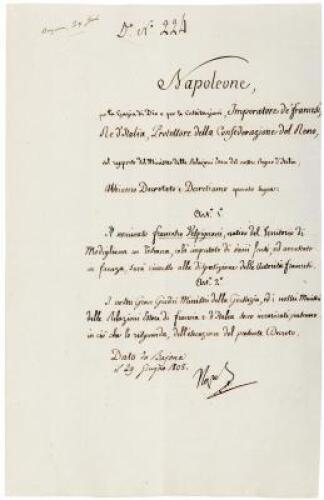 D.° N.° 224
Napoleone,
per la Grazia di Dio e per le Costituzioni, Imperatore de' Francesi,
Re d'Italia, Protettore della Confederazione del Reno,
sul rapporto del Ministro delle Relazioni Estere del nostro Regno d'Italia,
Abbiamo Decretato e Decretiamo quanto segue:
Art. 1.°
Il nominato Francesco, nativo del Territorio di
Modigliana in Toscana, colà imputato di varj furti, ed arrestato
in Faenza, sarà rimesso alla disposizione delle Autorità Francesi.
Art. 2.°
I nostri Gran Giudici Ministri della Giustizia, ed i nostri Ministri
delle Relazioni Estere di Francia e d'Italia sono incaricati, ciascuno
in ciò che lo risguarda, dell'esecuzione del presente Decreto.
Dato in Bajona
il 29 Giugno 1808.